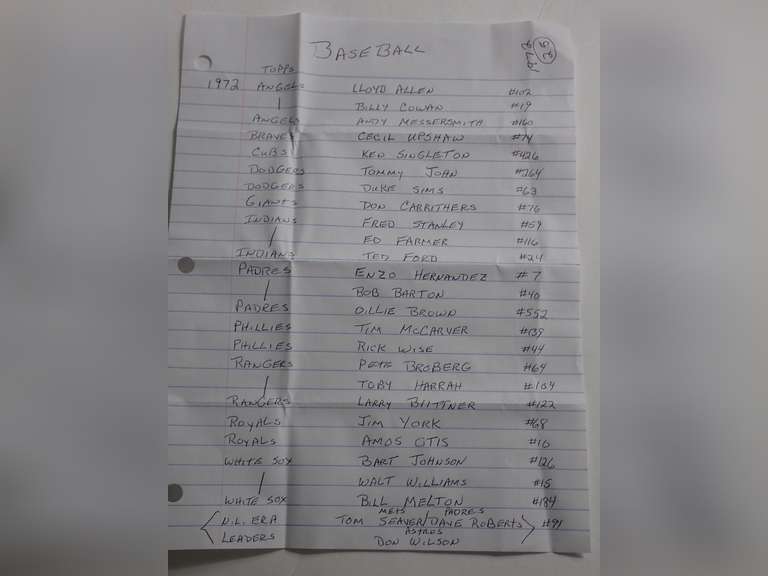 BASEBALL 1972 25
TOPPS
1972 ANGELS LLOYD ALLEN #102
| BILLY COWAN #19
ANGELS ANDY MESSERSMITH #160
BRAVES CECIL UPSHAW #74
CUBS KEN SINGLETON #426
DODGERS TOMMY JOHN #264
DODGERS DUKE SIMS #63
GIANTS DON CARRITHERS #76
INDIANS FRED STANLEY #59
| ED FARMER #116
INDIANS TED FORD #24
PADRES ENZO HERNANDEZ #7
| BOB BARTON #40
PADRES OLLIE BROWN #552
PHILLIES TIM McCARVER #139
PHILLIES RICK WISE #44
RANGERS PETE BROBERG #64
| TOBY HARRAH #104
RANGERS LARRY BIITTNER #122
ROYALS JIM YORK #68
ROYALS AMOS OTIS #10
WHITE SOX BART JOHNSON #126
| WALT WILLIAMS #15
WHITE SOX BILL MELTON #184
METS PADRES
N.L. ERA TOM SEAVER/DAVE ROBERTS #91
ASTROS
LEADERS DON WILSON